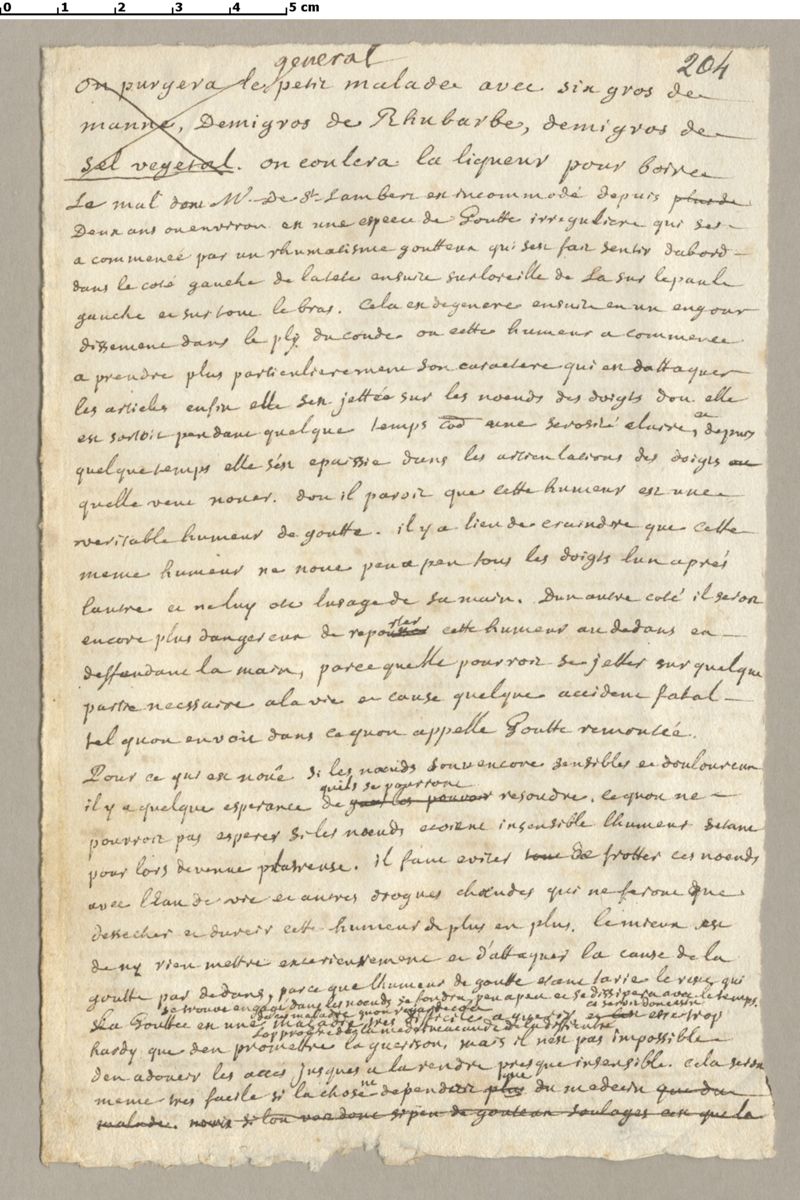 0 1 2 3 4 5 cm
general
204
on purgera le petit malade avec six gros de
manne, Demigros de Rhubarbe, demigros de
Sel vegetal. on coulera la liqueur pour boire
Le mal dont Mr. De St. Lambert est incommodé depuis plus de
Deux ans ou environ est une espece de Goutte irreguliere qui ses
a commencé par un rhumatisme goutteux qui sest fait sentir dabord
dans le coté gauche de la tete ensuite sur loreille de La sur lepaule
gauche et sur tout le bras. Cela est degeneré ensuite en un engour
dissement dans le ply du coude ou cette humeur a commencé
a prendre plus particulierement son caractere qui est dattaquer
les articles enfin elle sest jettée sur les noeuds des doigts dou elle
est sortoit pendant quelque temps une serosité claire, et depuis
quelque temps elle s'est epaissie dans les articulations des doigts
quelle veut nouer. dou il paroit que cette humeur est une
veritable humeur de goutte. il y a lieu de craindre que cette
meme humeur ne noue peu a peu tous les doigts lun aprés
lautre et ne luy ote lusage de sa main. Dun autre coté il seroit
encore plus dangereux de reporter cette humeur au dedans en
deffendant la main, parce quelle pourroit se jetter sur quelque
partie necessaire a la vie et cause quelque accident fatal
tel quon en voit dans ce quon appelle Goutte remontée.
Pour ce qui est noüé si les noeuds sont encore sensibles et douloureux
quils se pourront
il y a quelque esperance de resoudre. ce quon ne
pourroit pas esperer si les noeuds etoient insensible lhumeur setant
pour lors devenue plastreuse. il faut eviter tout de frotter ces noeuds
avec lEau de vie et autres drogues chaudes qui ne feront que
dessecher et durcir cette humeur de plus en plus. le mieux est
de ny rien mettre exterieurement et d'attaquer la cause de la
goutte par dedans, parce que lhumeur de goutte etant tarie le reste qui
se trouve engagé dans les noeuds se fondra peu a peu et se dissipera avec le temps.
La Gouttee est une maladie tres difficile a guerir, et cest etre trop
hardy que den promettre la guerison, mais il nest pas impossible
den adoucir les acces jusques a la rendre presque insensible. cela seroit
meme tres facile si la chose ne dependoit que du medecin que du
malade. mais si lon voit donc si peu de gouteux soulagés cest que la